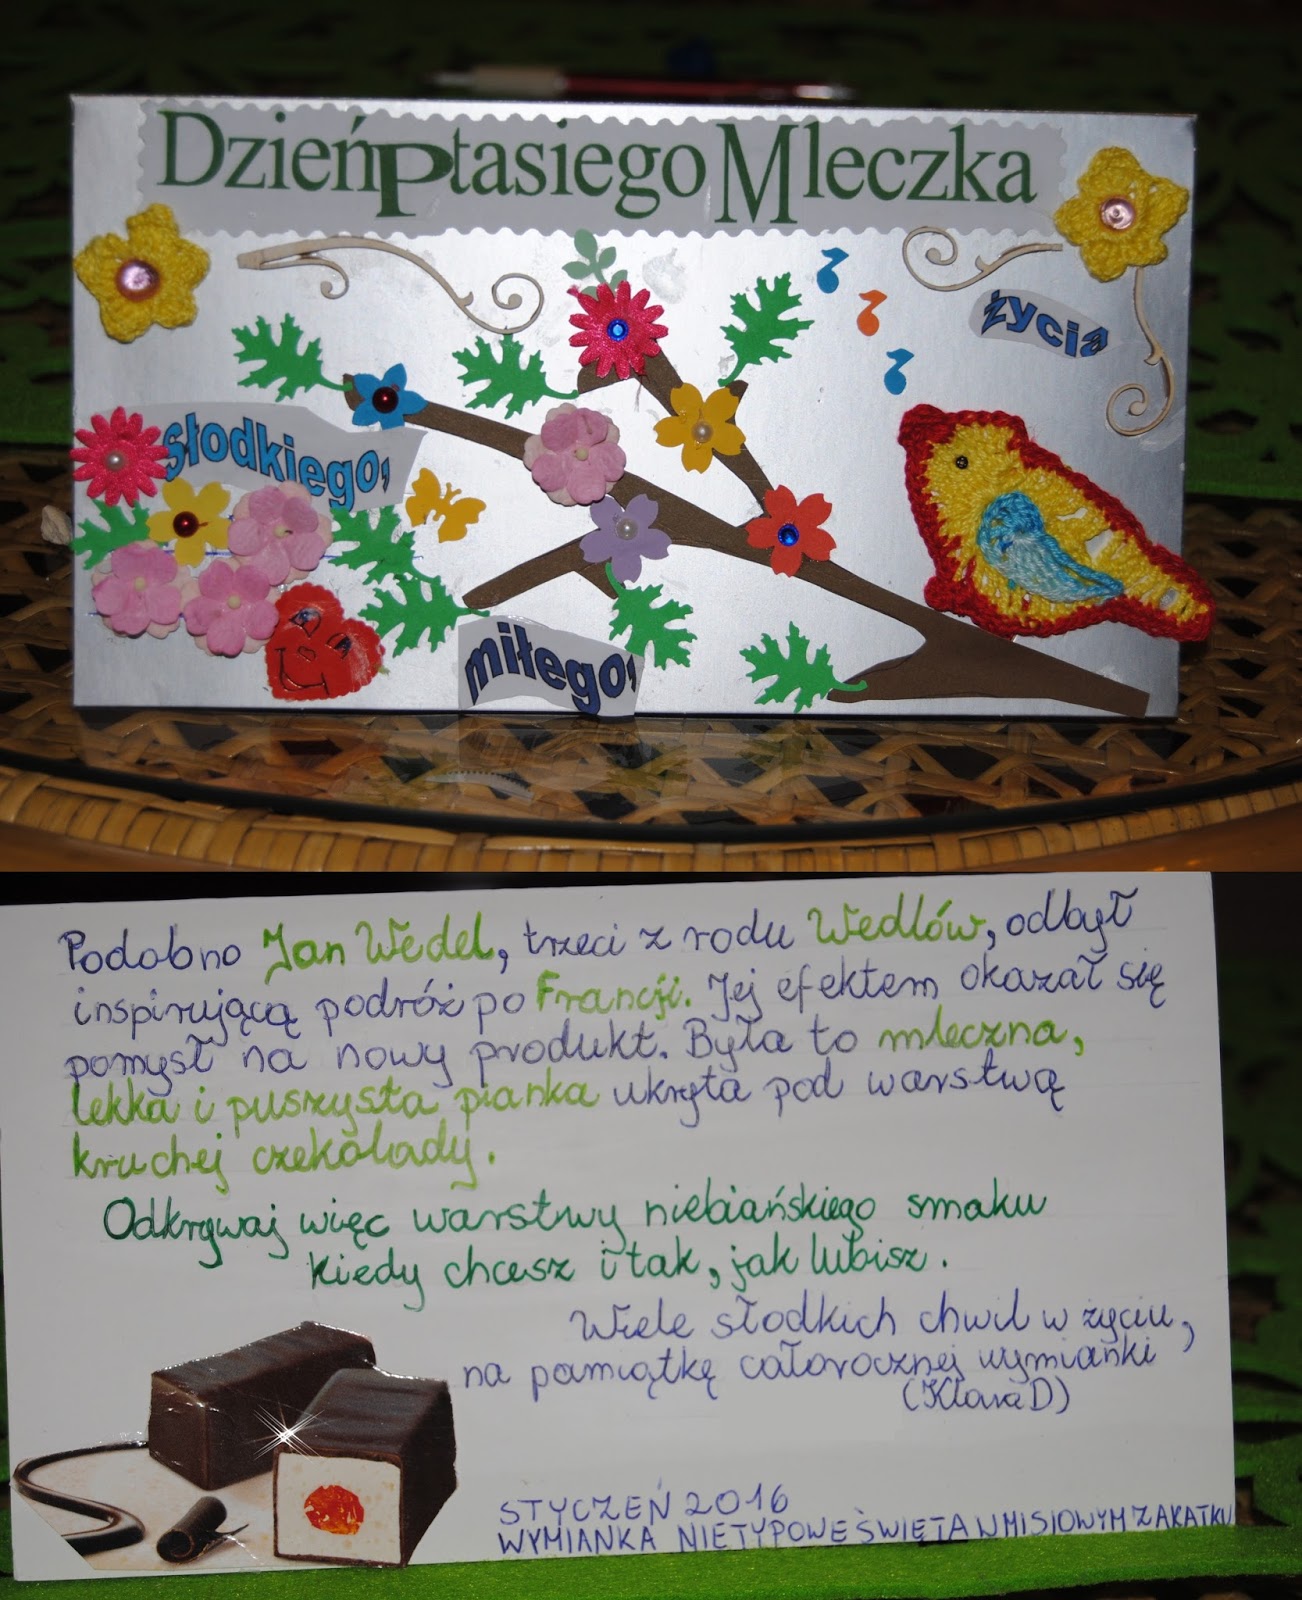 Dzień Ptasiego Mleczka
życia
słodkiego,
miłego,
Podobno Jan Wedel, trzeci z rodu Wedlów, odbył
inspirującą podróż po Francji. Jej efektem okazał się
pomysł na nowy produkt. Była to mleczna,
lekka i puszysta pianka ukryta pod warstwą
kruchej czekolady.
Odkrywaj więc warstwy niebiańskiego smaku
kiedy chcesz i tak, jak lubisz.
Wiele słodkich chwil w życiu,
na pamiątkę całorocznej wymianki
(Klara D)
STYCZEŃ 2016
WYMIANKA NIETYPOWE ŚWIĘTA W MISIOWYM ZAKĄTKU